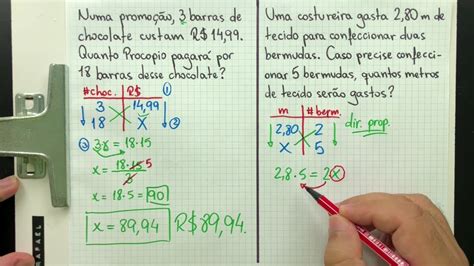 Numa promoção, 3 barras de
chocolate custam R$ 14,99.
Quanto Procopio pagará por
18 barras desse chocolate?
#choc. R$ ①
3 14,99
18 x ②
③ 3·x = 18·15
x = 18·15 5
3
x = 18·5 = 90
x = 89,94 R$ 89,94.
Uma costureira gasta 2,80 m de
tecido para confeccionar duas
bermudas. Caso precise confecci-
onar 5 bermudas, quantos metros
de tecido serão gastos?
m # berm.
2,80 2 dir. prop.
x 5
2,8·5 = 2x
RAFAEL